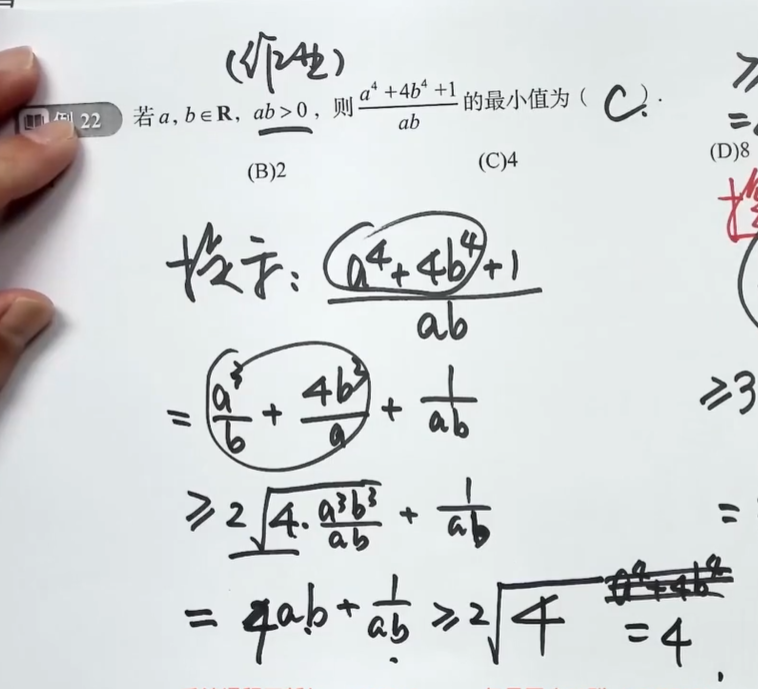 例 22 若 a, b∈R, ab>0, 则 (a⁴+4b⁴+1)/(ab) 的最小值为( C ).
(B)2 (C)4 (D)8
提示: (a⁴+4b⁴+1)/(ab)
= a³/b + 4b³/a + 1/(ab)
≥ 2√(4·(a³b³)/(ab)) + 1/(ab)
≥3
= 4ab + 1/(ab) ≥ 2√4 = 4